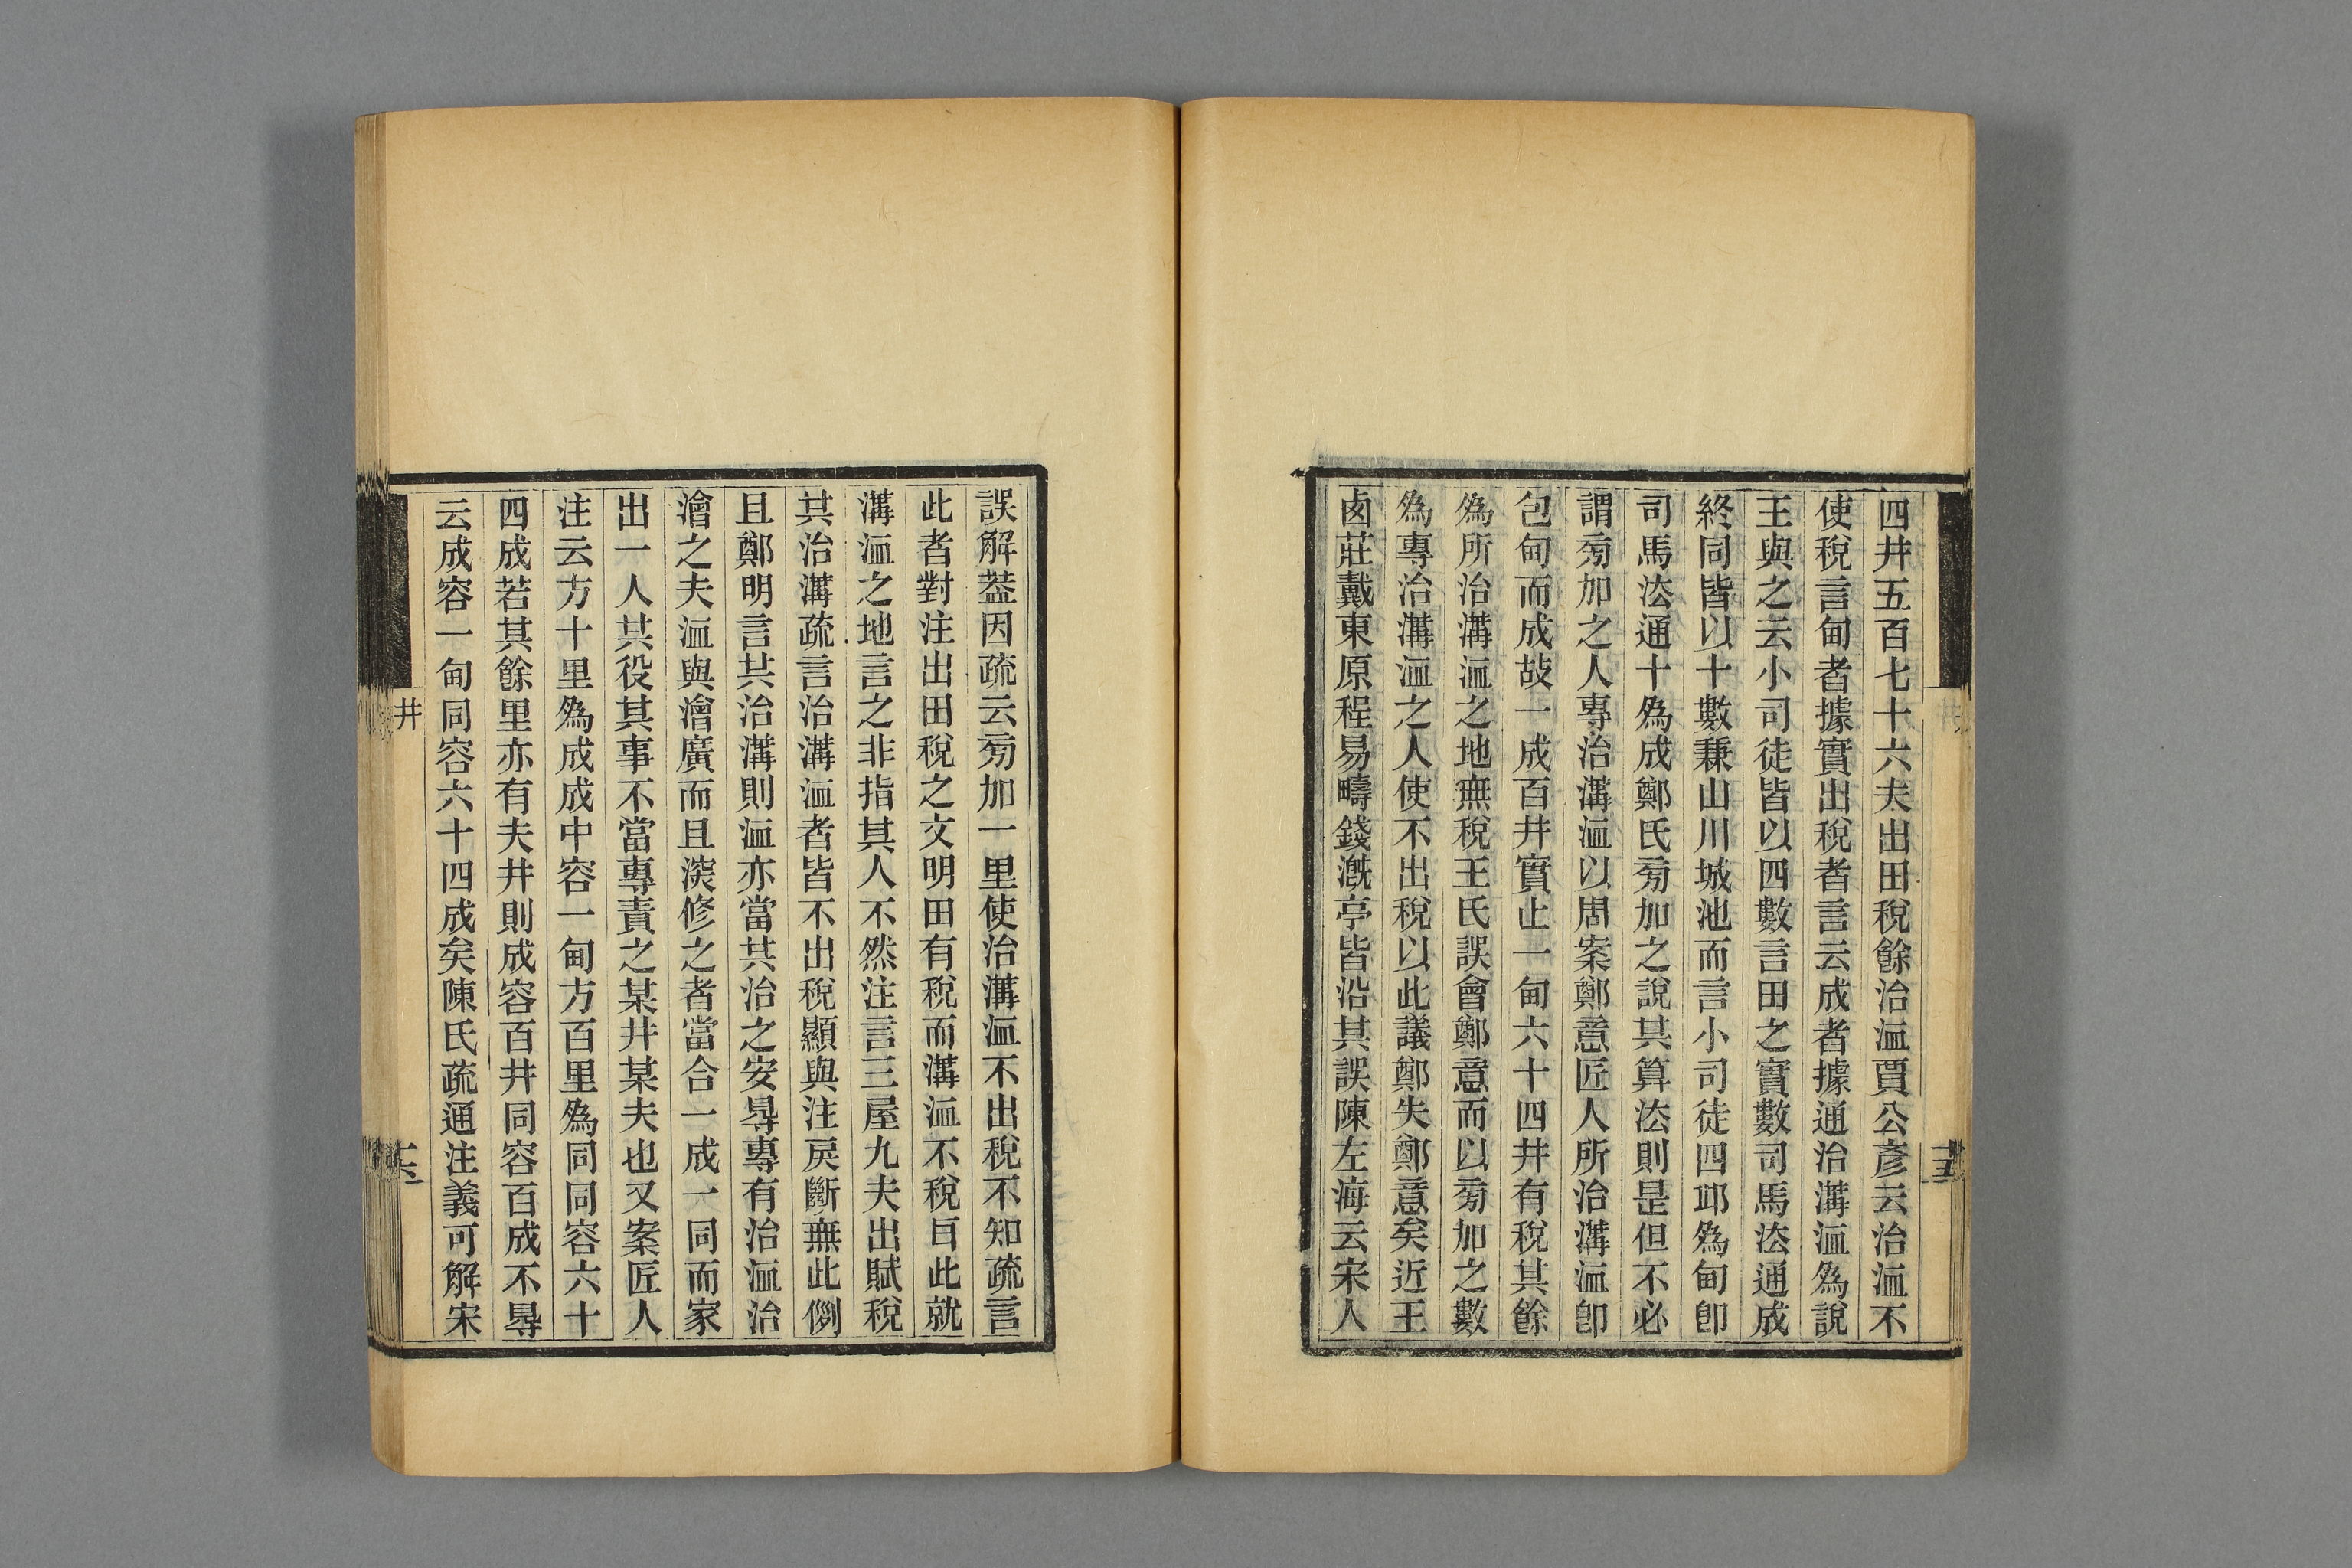 四井五百七十六夫出田稅餘治洫賈公彥云治洫不
使稅言甸者據實出稅者言云成者據通治溝洫爲說
王與之云小司徒皆以四數言田之實數司馬法通成
終同皆以十數兼山川城池而言小司徒四邱爲甸卽
司馬法通十爲成鄭氏㫄加之說其算法則是但不必
謂㫄加之人專治溝洫以周案鄭意匠人所治溝洫卽
包甸而成故一成百井實止一甸六十四井有稅其餘
爲所治溝洫之地無稅王氏誤會鄭意而以㫄加之數
爲專治溝洫之人使不出稅以此議鄭失鄭意矣近王
鹵莊戴東原程易疇錢溉亭皆沿其誤陳左海云宋人
十五
誤解葢因疏云㫄加一里使治溝洫不出稅不知疏言
此者對注出田稅之文明田有稅而溝洫不稅㠯此就
溝洫之地言之非指其人不然注言三屋九夫出賦稅
其治溝疏言治溝洫者皆不出稅顯與注戾斷無此例
且鄭明言共治溝則洫亦當共治之安㝵專有治洫治
澮之夫洫與澮廣而且深修之者當合一成一同而家
出一人其役其事不當專責之某井某夫也又案匠人
注云方十里爲成成中容一甸方百里爲同同容六十
四成若其餘里亦有夫井則成容百井同容百成不㝵
云成容一甸同容六十四成矣陳氏疏通注義可解宋
井